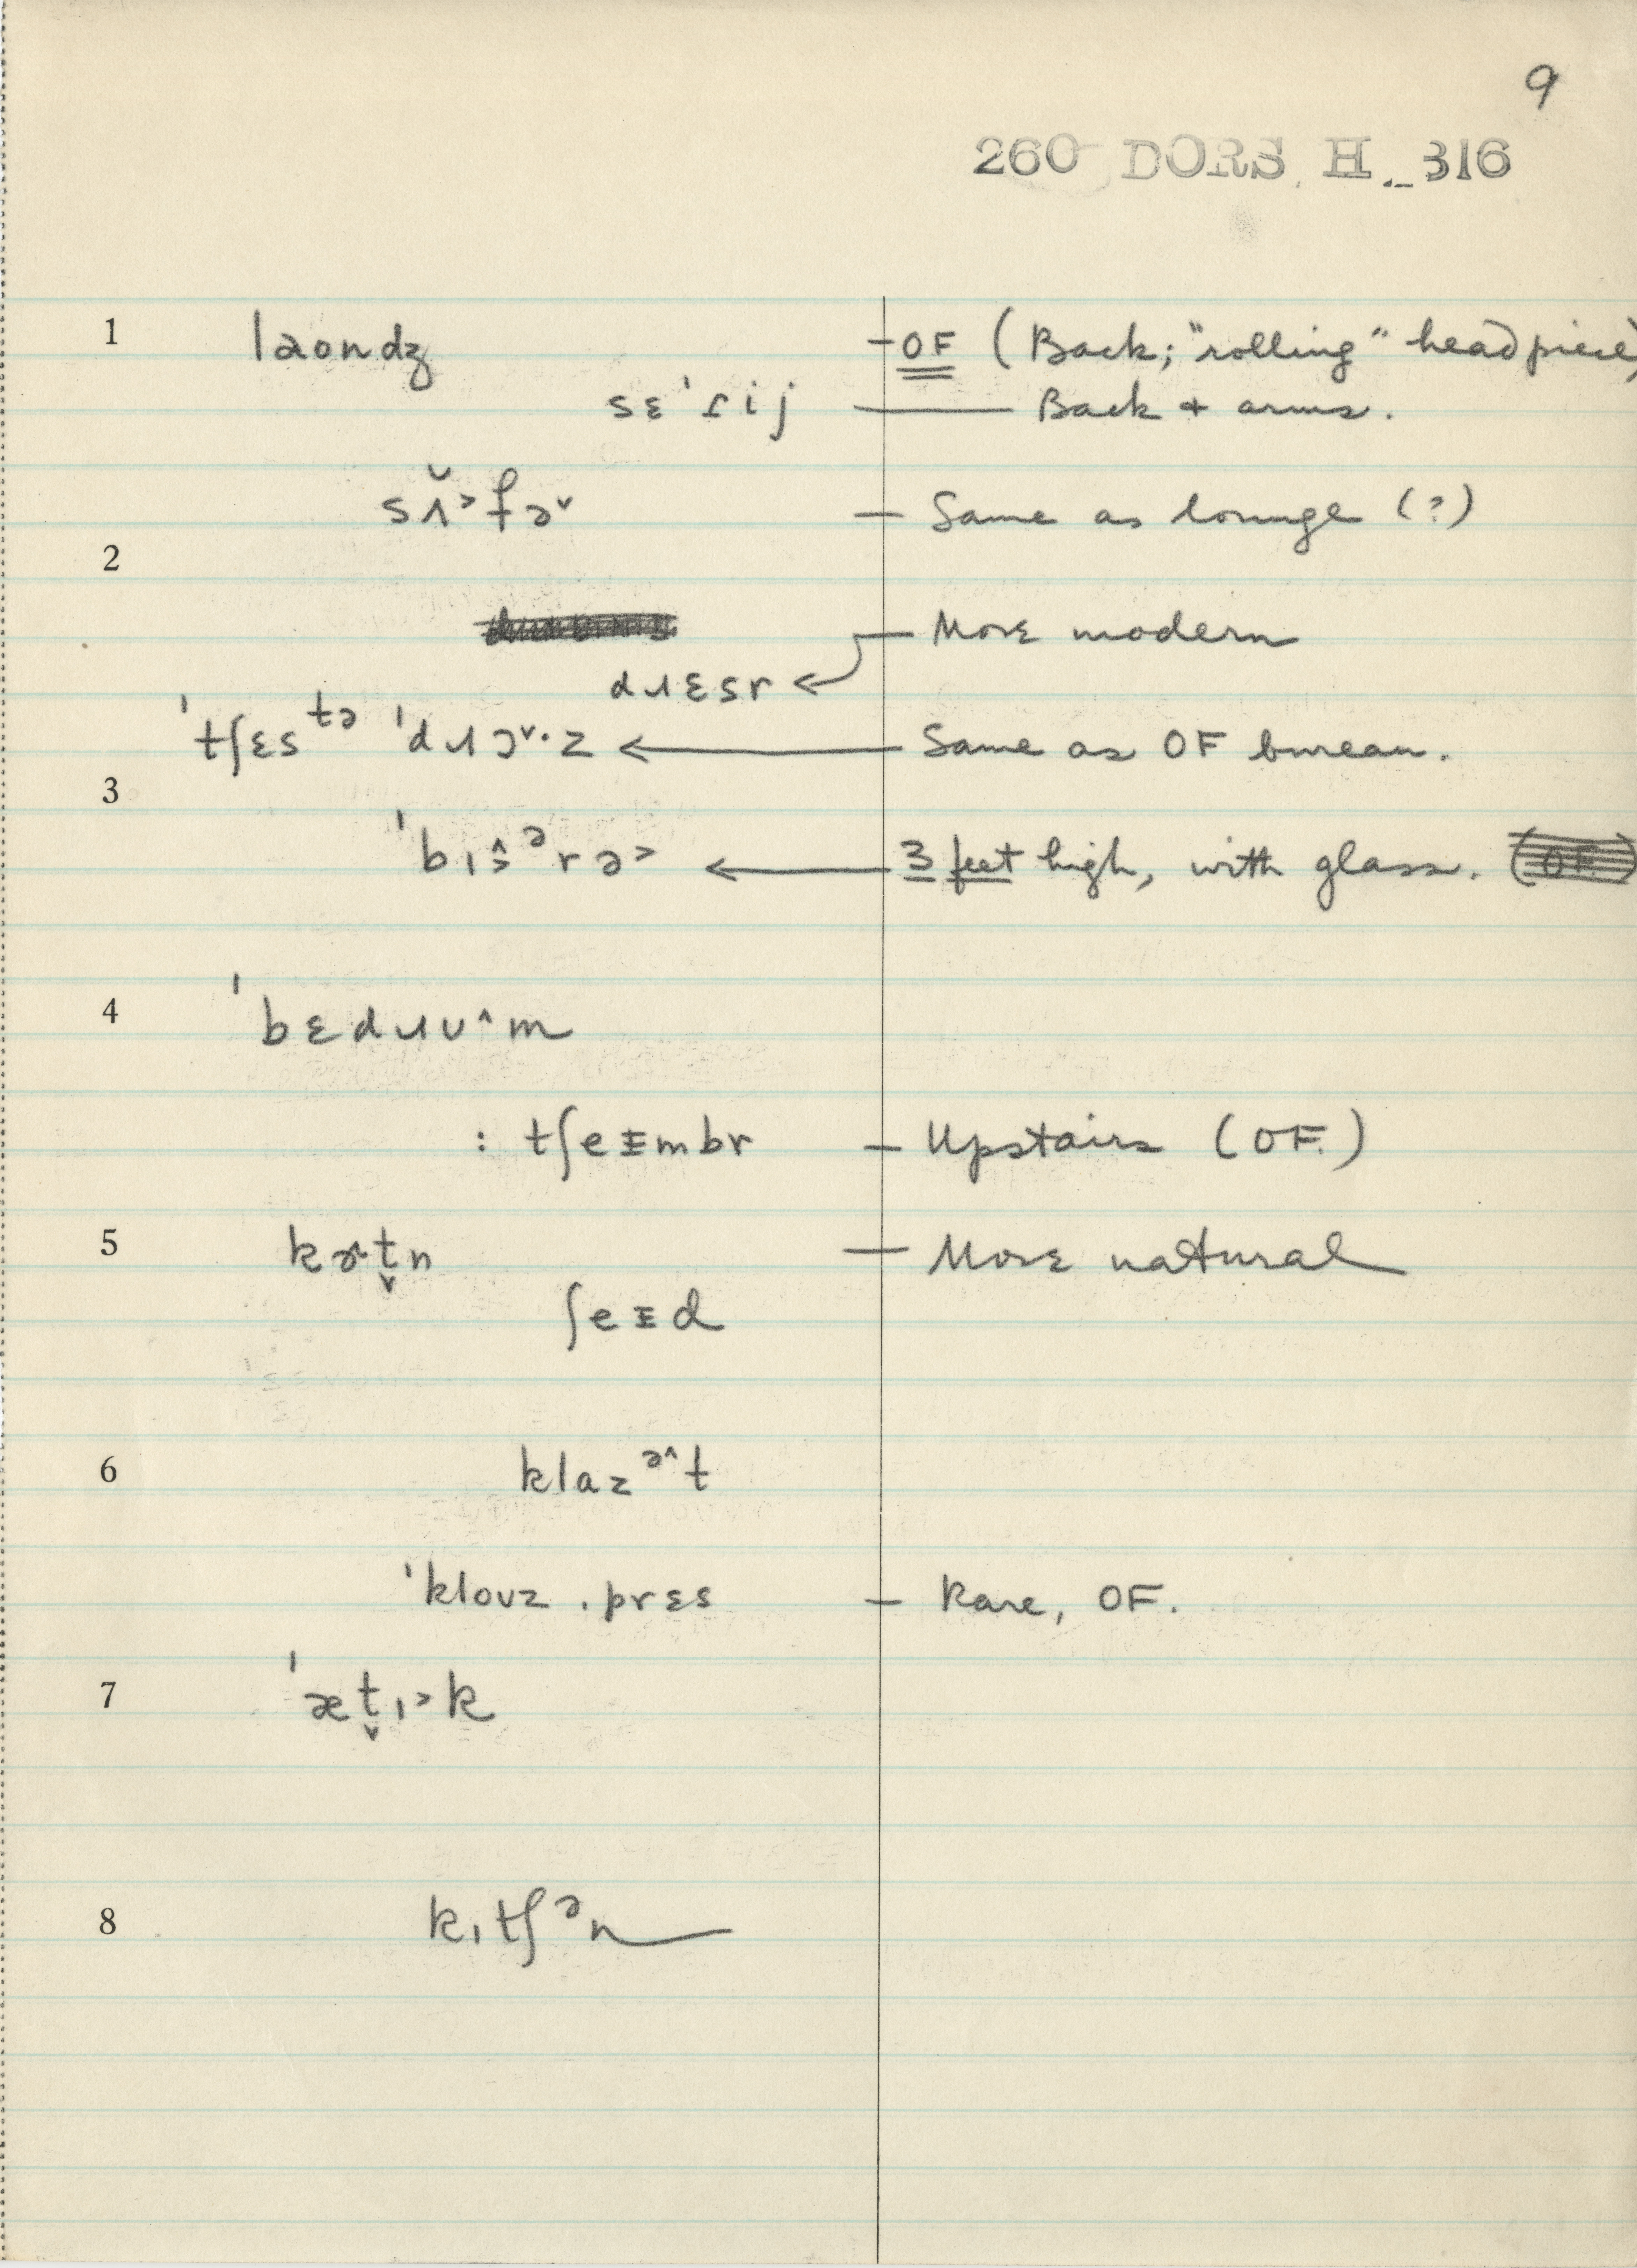 9
260 DORS. H. 316
1 laondʒ – OF (Back; "rolling" headpiece)
sɛˈɾij — Back + arms.
sʌ̆˃fə˅ – Same as lounge (?)
2
– More modern
dɹɛsr ←
ˈtʃɛstə ˈdɹɔ˅·z ← Same as OF bureau.
3
ˈbɪŝᵊrə˃ ← 3 feet high, with glass.
4 ˈbɛdɹʊ^m
: tʃeɪmbr – Upstairs (OF.)
5 kɚt̬n — More natural
ʃeɪd
6 klazᵊ^t
ˈkloʊz ˌprɛs – Rare, OF.
7 ˈæt̬ɪ˃k
8 kɪtʃᵊn